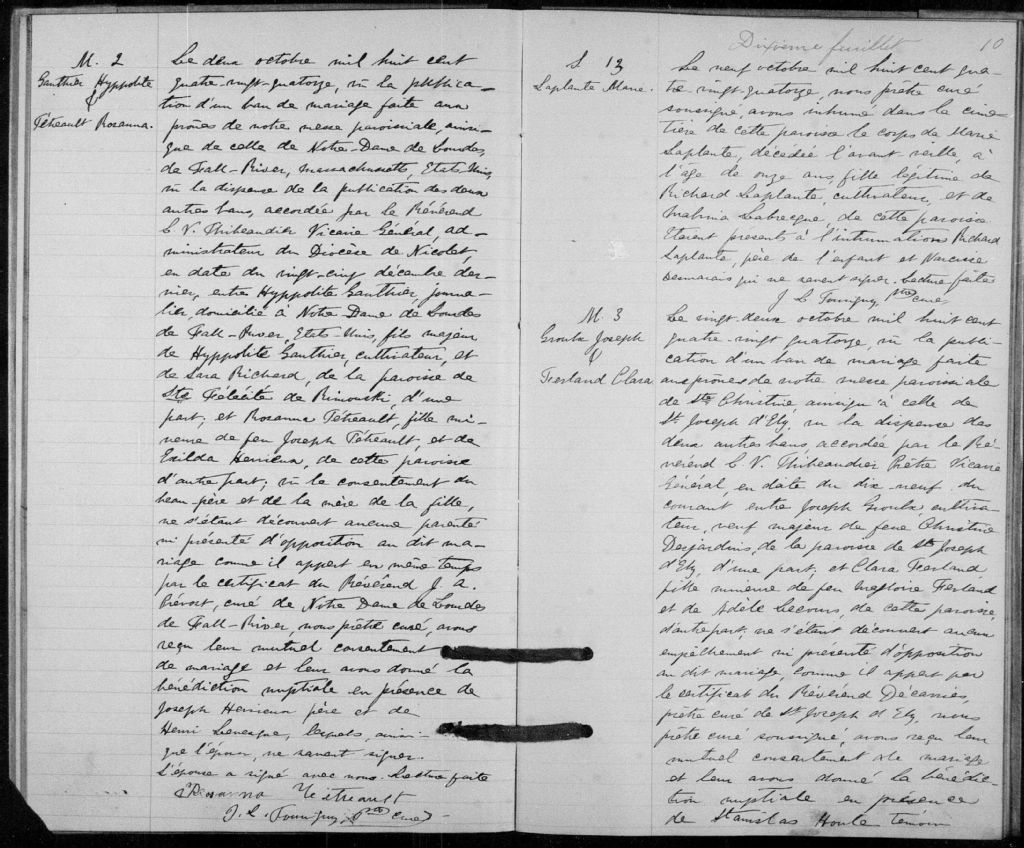 M. 2
Gauthier Hyppolite
&
Tétreault Rosanna.
Le deux octobre mil huit cent
quatre-vingt-quatorze, vu la publica-
tion d'un ban de mariage faite aux
prônes de notre messe paroissiale, ainsi-
que de celle de Notre-Dame de Lourdes,
de Fall-River, Massachusetts, Etats Unis,
vu la dispense de la publication des deux
autres bans, accordée par le Révérend
C. V. Thibeaudier Vicaire Général, ad-
ministrateur du Diocèse de Nicolet,
en date du vingt-cinq décembre der-
nier, entre Hyppolite Gauthier, journa-
lier, domicilié à Notre-Dame de Lourdes
de Fall-River, Etats-Unis, fils majeur
de Hyppolite Gauthier, cultivateur, et
de Sara Richard, de la paroisse de
Ste Félicité de Rimouski, d'une
part; et Rosanna Tétreault, fille mi-
neure de feu Joseph Tétreault, et de
Exilda Herrieux, de cette paroisse
d'autre part; vu le consentement du
beau-père et de la mère de la fille,
ne s'étant découvert aucune parenté
ni présenté d'opposition au dit ma-
riage comme il appert en même temps
par le certificat du Révérend J. A.
Prévost, curé de Notre Dame de Lourdes
de Fall-River, nous prêtre curé, avons
reçu leur mutuel consentement
de mariage et leur avons donné la
bénédiction nuptiale en présence de
Joseph Herrieux père et de
Henri Levesque, lesquels, ainsi-
que l'époux, ne savent signer.
L'épouse a signé avec nous. Lecture faite
Rosanna Tétreault
J. L. Tourigny, Ptre curé
Dixième feuillet 10
S 13
Laplante Marie.
Le neuf octobre mil huit cent qua-
tre-vingt-quatorze, nous prêtre curé
soussigné, avons inhumé dans le cime-
tière de cette paroisse le corps de Marie
Laplante, décédée l'avant veille, à
l'âge de onze ans, fille légitime de
Richard Laplante, cultivateur, et de
Labrecque de cette paroisse.
Etaient présents à l'inhumation Richard
Laplante, père de l'enfant et Narcisse
Desmarais qui ne savent signer. Lecture faite
J. L. Tourigny, Ptre curé
M. 3
Groulx Joseph
&
Ferland Clara
Le vingt-deux octobre mil huit cent
quatre-vingt quatorze, vu la publi-
cation d'un ban de mariage faite
aux prônes de notre messe paroissiale
de Ste Christine ainsiqu'à celle de
St Joseph d'Ely, vu la dispense des
deux autres bans, accordée par le Ré-
vérend C. V. Thibeaudier Prêtre Vicaire
Général, en date du dix-neuf du
courant entre Joseph Groulx, cultiva-
teur, veuf majeur de feue Christine
Desjardins, de la paroisse de St Joseph
d'Ely, d'une part; et Clara Ferland
fille mineure de feu Ferland
et de Adèle Lecours, de cette paroisse,
d'autre part; ne s'étant découvert aucun
empêchement ni présenté d'opposition
au dit mariage, comme il appert par
le certificat du Révérend Décarries,
prêtre curé de St Joseph d'Ely, nous
prêtre curé soussigné, avons reçu leur
mutuel consentement de mariage
et leur avons donné la bénédic-
tion nuptiale en présence
de Stanislas Houle témoin